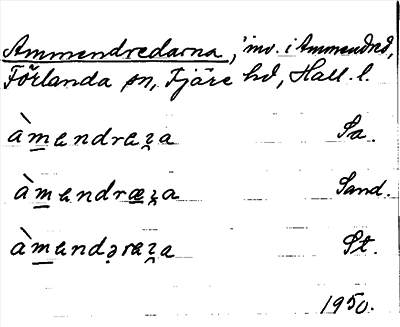 Ammendredarna, inv. i Ammendred,
Förlanda sn, Fjäre hd, Hall. l.
àmendrɛza Sa.
àmendræza Sand.
àmendərɛza St.
1950.